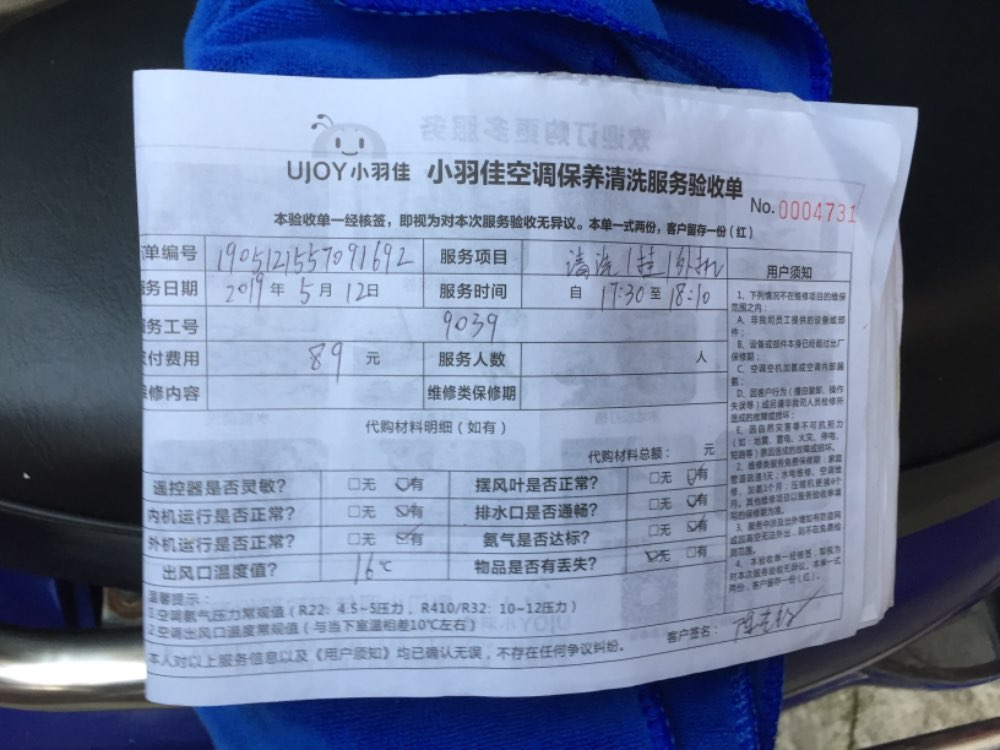 UJOY小羽佳 小羽佳空调保养清洗服务验收单
No. 0004731
本验收单一经核签，即视为对本次服务验收无异议。本单一式两份，客户留存一份（红）
单编号 1905121557091692 服务项目 清洗1挂1外机
务日期 2019年5月12日 服务时间 自 17:30 至 18:10
务工号 9039
付费用 89 元 服务人数 人
修内容 维修类保修期
代购材料明细（如有）
代购材料总额： 元
遥控器是否灵敏? □无 □有 摆风叶是否正常? □无 □有
内机运行是否正常? □无 □有 排水口是否通畅? □无 □有
外机运行是否正常? □无 □有 氨气是否达标? □无 □有
出风口温度值? 16℃ 物品是否有丢失? □无 □有
温馨提示：
1.空调氨气压力常规值（R22：4.5~5压力，R410/R32：10~12压力）
2.空调出风口温度常规值（与当下室温相差10℃左右）
本人对以上服务信息以及《用户须知》均已确认无误，不存在任何争议纠纷。
客户签名：
用户须知
1、下列情况不在维修项目的维保
范围之内：
A、非我司员工提供的设备或部
件；
B、设备或部件本身已经超过出厂
保修期；
C、空调空机加氨或空调内部漏
氨；
D、因客户行为（擅自装卸、操作
失误等）或另请非我司人员检修所
造成的故障或损坏；
E、因自然灾害等不可抗拒力
（如：地震、雷电、火灾、停电、
短路等）原因造成的故障或损坏。
2、维修类服务免费保修期：家庭
管道疏通3天；水电维修、空调维
修、加氨1个月；压缩机更换6个
月。其他维修项目以服务验收单填
写的保修期为准。
4、本验收单一经核签，即视为
对本次服务验收无异议。本单一式
两份，客户留存一份（红）。
欢迎订购更多服务